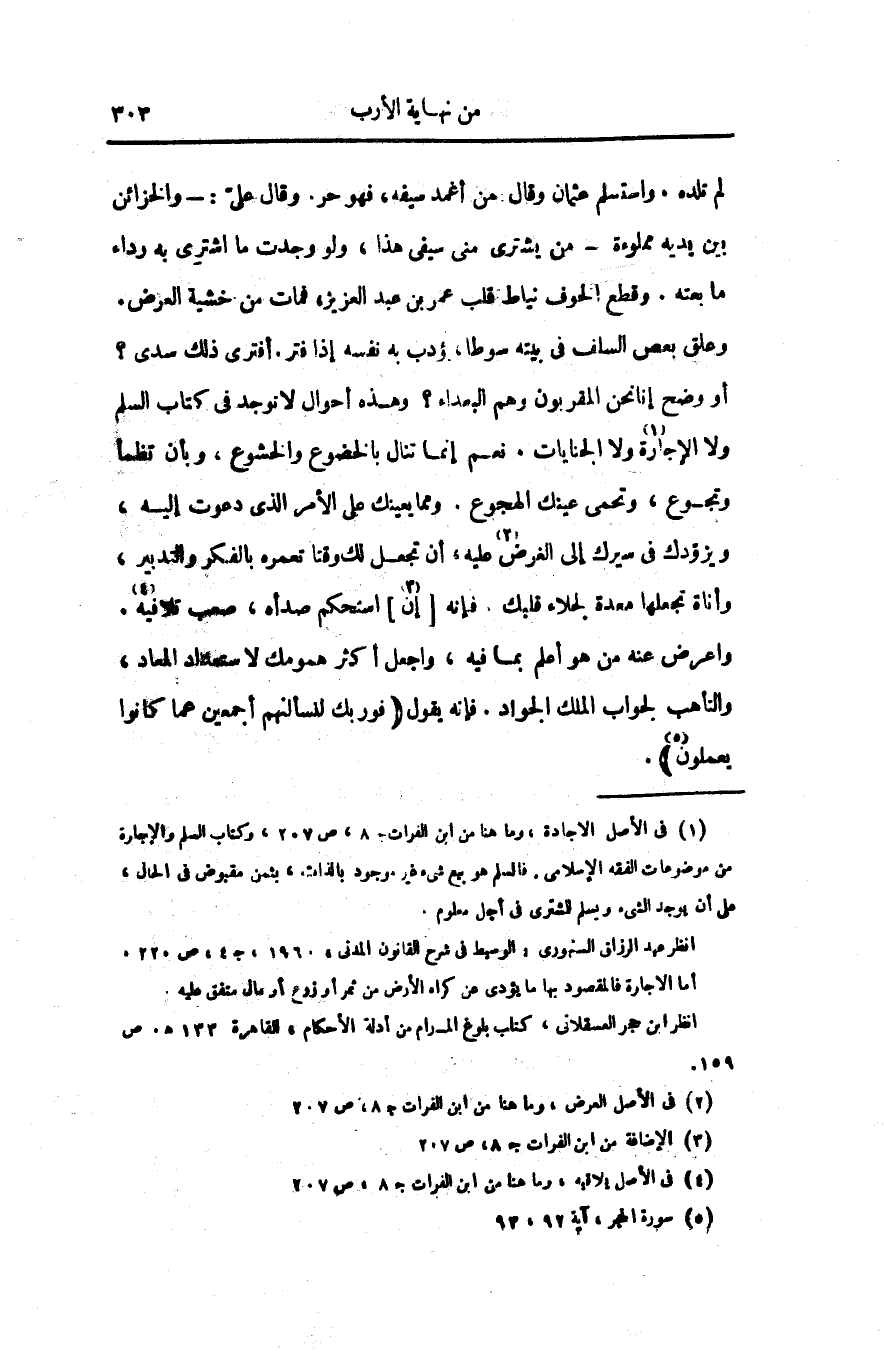 من نهاية الأرب ٣٠٣
لم تلده . واستسلم عثمان وقال من أغمد سيفه، فهو حر. وقال علىّ : — والخزائن
بين يديه مملوءة — من يشترى منى سيفى هذا ، ولو وجدت ما اشترى به رداء
ما بعته . وقطع الخوف نياط قلب عمر بن عبد العزيز، فمات من خشية العرض.
وعلق بعض السلف فى بيته سوطا، يؤدب به نفسه إذا فتر. أفترى ذلك سدى ؟
أو وضح إنانحن المقربون وهم البعداء ؟ وهذه أحوال لاتوجد فى كتاب السلم
ولا الإجارة(١) ولا الجنايات . نعم إنما تنال بالخضوع والخشوع ، وبأن تظمأ
وتجوع ، وتحمى عينك الهجوع . ومما يعينك على الأمر الذى دعوت إليه ،
ويزودك فى سيرك إلى الغرض(٢) عليه، أن تجعل لك وقتا تعمره بالفكر والتدبير ،
وأناة تجعلها معدة لجلاء قلبك . فإنه [ إن(٣) ] استحكم صدأه ، صعب تلافيه(٤) .
واعرض عنه من هو أعلم بما فيه ، واجعل أكثر همومك لاستعداد المعاد ،
والتأهب لجواب الملك الجواد . فإنه يقول ( فوربك لنسألنهم أجمعين عما كانوا
يعملون(٥)) .
(١) فى الأصل الاجادة ، وما هنا من ابن الفرات جـ ٨ ، ص ٢٠٧ ، وكتاب السلم والإجارة
من موضوعات الفقه الإسلامى . فالسلم هو بيع شىء غير موجود بالذات ، بثمن مقبوض فى الحال ،
على أن يوجد الشىء ويسلم للمشترى فى أجل معلوم .
انظر عبد الرزاق السنهورى : الوسيط فى شرح القانون المدنى ، ١٩٦٠ ، جـ ٤ ، ص ٢٢٠ .
أما الاجارة فالمقصود بها ما يؤدى عن كراء الأرض من ثمر أو زوع أو مال متفق عليه .
انظر ابن حجر العسقلانى ، كتاب بلوغ المرام من أدلة الأحكام ، القاهرة ١٣٣ هـ . ص
١٥٩.
(٢) فى الأصل العرض ، وما هنا من ابن الفرات جـ ٨، ص ٢٠٧
(٣) الإضافة من ابن الفرات جـ ٨، ص ٢٠٧
(٤) فى الأصل يلاقيه ، وما هنا من ابن الفرات جـ ٨ ، ص ٢٠٧
(٥) سورة الحجر ، آية ٩٢ ، ٩٣